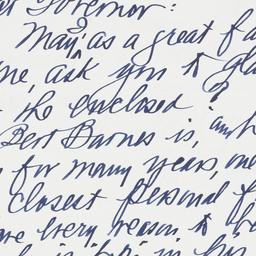 Governor:
May I as a great fa
me, ask you to gla
the enclosed ?
Bert Barnes is, and h
for many years, one
closest personal f
are every reason to be